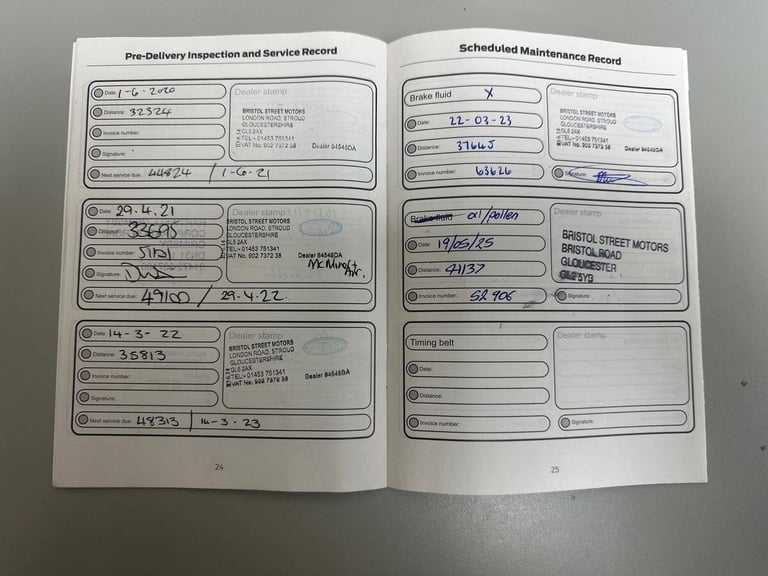 Pre-Delivery Inspection and Service Record
Date: 1-6-2020
Distance: 32324
Invoice number:
Signature:
Next service due: 44824 / 1-6-21
Dealer stamp
BRISTOL STREET MOTORS
LONDON ROAD, STROUD
GLOUCESTERSHIRE
GL5 2AX
TEL:- 01453 751341
VAT No. 902 7372 38
Dealer 84548DA
Date: 29.4.21
Distance: 33695
Invoice number:
Signature:
Next service due: 49100 / 29.4.22.
Dealer stamp
BRISTOL STREET MOTORS
LONDON ROAD, STROUD
GLOUCESTERSHIRE
GL5 2AX
TEL:- 01453 751341
VAT No. 902 7372 38
Dealer 84548DA
Date: 14-3-22
Distance: 35813
Invoice number:
Signature:
Next service due: 48313 / 14-3-23
Dealer stamp
BRISTOL STREET MOTORS
LONDON ROAD, STROUD
GLOUCESTERSHIRE
GL5 2AX
TEL:- 01453 751341
VAT No. 902 7372 38
Dealer 84548DA
24
Scheduled Maintenance Record
Brake fluid X
Date: 22-03-23
Distance: 37645
Invoice number: 63626
Dealer stamp
BRISTOL STREET MOTORS
LONDON ROAD, STROUD
GLOUCESTERSHIRE
GL5 2AX
TEL:- 01453 751341
VAT No. 902 7372 38
Dealer 84548DA
Signature:
Brake fluid oil/pollen
Date: 19/05/25
Distance: 41137
Invoice number: 52906
Dealer stamp
BRISTOL STREET MOTORS
BRISTOL ROAD
GLOUCESTER
GL2 5YB
Signature:
Timing belt
Date:
Distance:
Invoice number:
Dealer stamp
Signature:
25